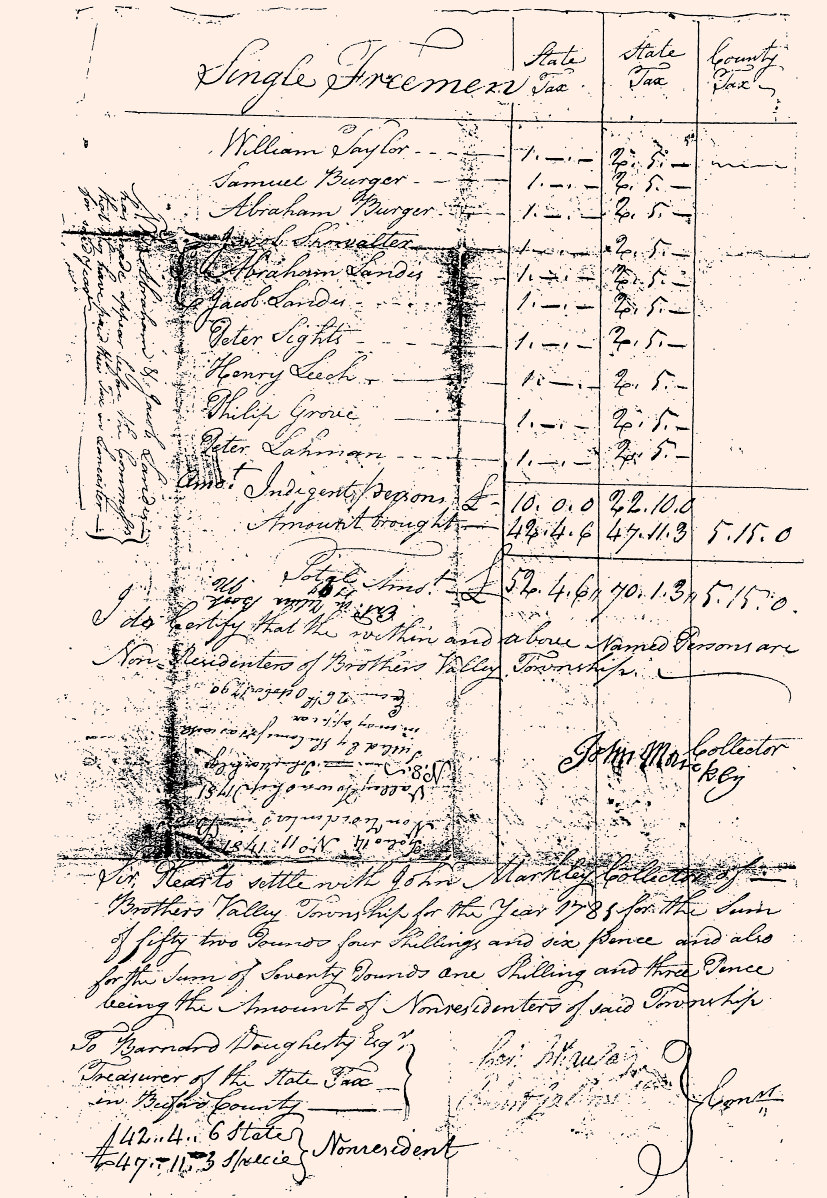 Single Freemen State Tax State Tax County Tax
William Taylor 1. _ . _ 2. 5. _
Samuel Burger 1. _ . _ 2. 5. _
Abraham Burger 1. _ . _ 2. 5. _
Jacob Showalter 1. _ . _ 2. 5. _
Abraham Landis 1. _ . _ 2. 5. _
Jacob Landis 1. _ . _ 2. 5. _
Peter Sights 1. _ . _ 2. 5. _
Henry Leech 1. _ . _ 2. 5. _
Philip Grove 1. _ . _ 2. 5. _
Peter Lahman 1. _ . _ 2. 5. _
Amot Indigent persons £ 10. 0. 0 22. 10. 0
Amount brought 42. 4. 6 47. 11. 3 5. 15. 0
Total Amot £ 52. 4. 6 70. 1. 3 5. 15. 0.
I do Certify that the within and above Named Persons are
Non-Residenters of Brothers Valley Township.
Abraham & Jacob Landis
has made appear before the Commrs
that they have paid their Tax in Lancaster
for said year
John Collector
Folio 14 No 11. 1781
Non Residenters
Valley Township 1781
No. 8.
in may appear
26th October 1790
Sir, Pleas to settle with John Markley Collector of
Brothers Valley Township for the Year 1781 for the Sum
of fifty two Pounds four Shillings and six pence and also
for the Sum of Seventy Pounds one Shilling and three Pence
being the Amount of Nonresidenters of said Township
To Barnard Dougherty Esqr.
Treasurer of the State Tax
in Bedford County
Comrs
£42.. 4.. 6 State
£47.. 11.. 3 Specie Nonresident